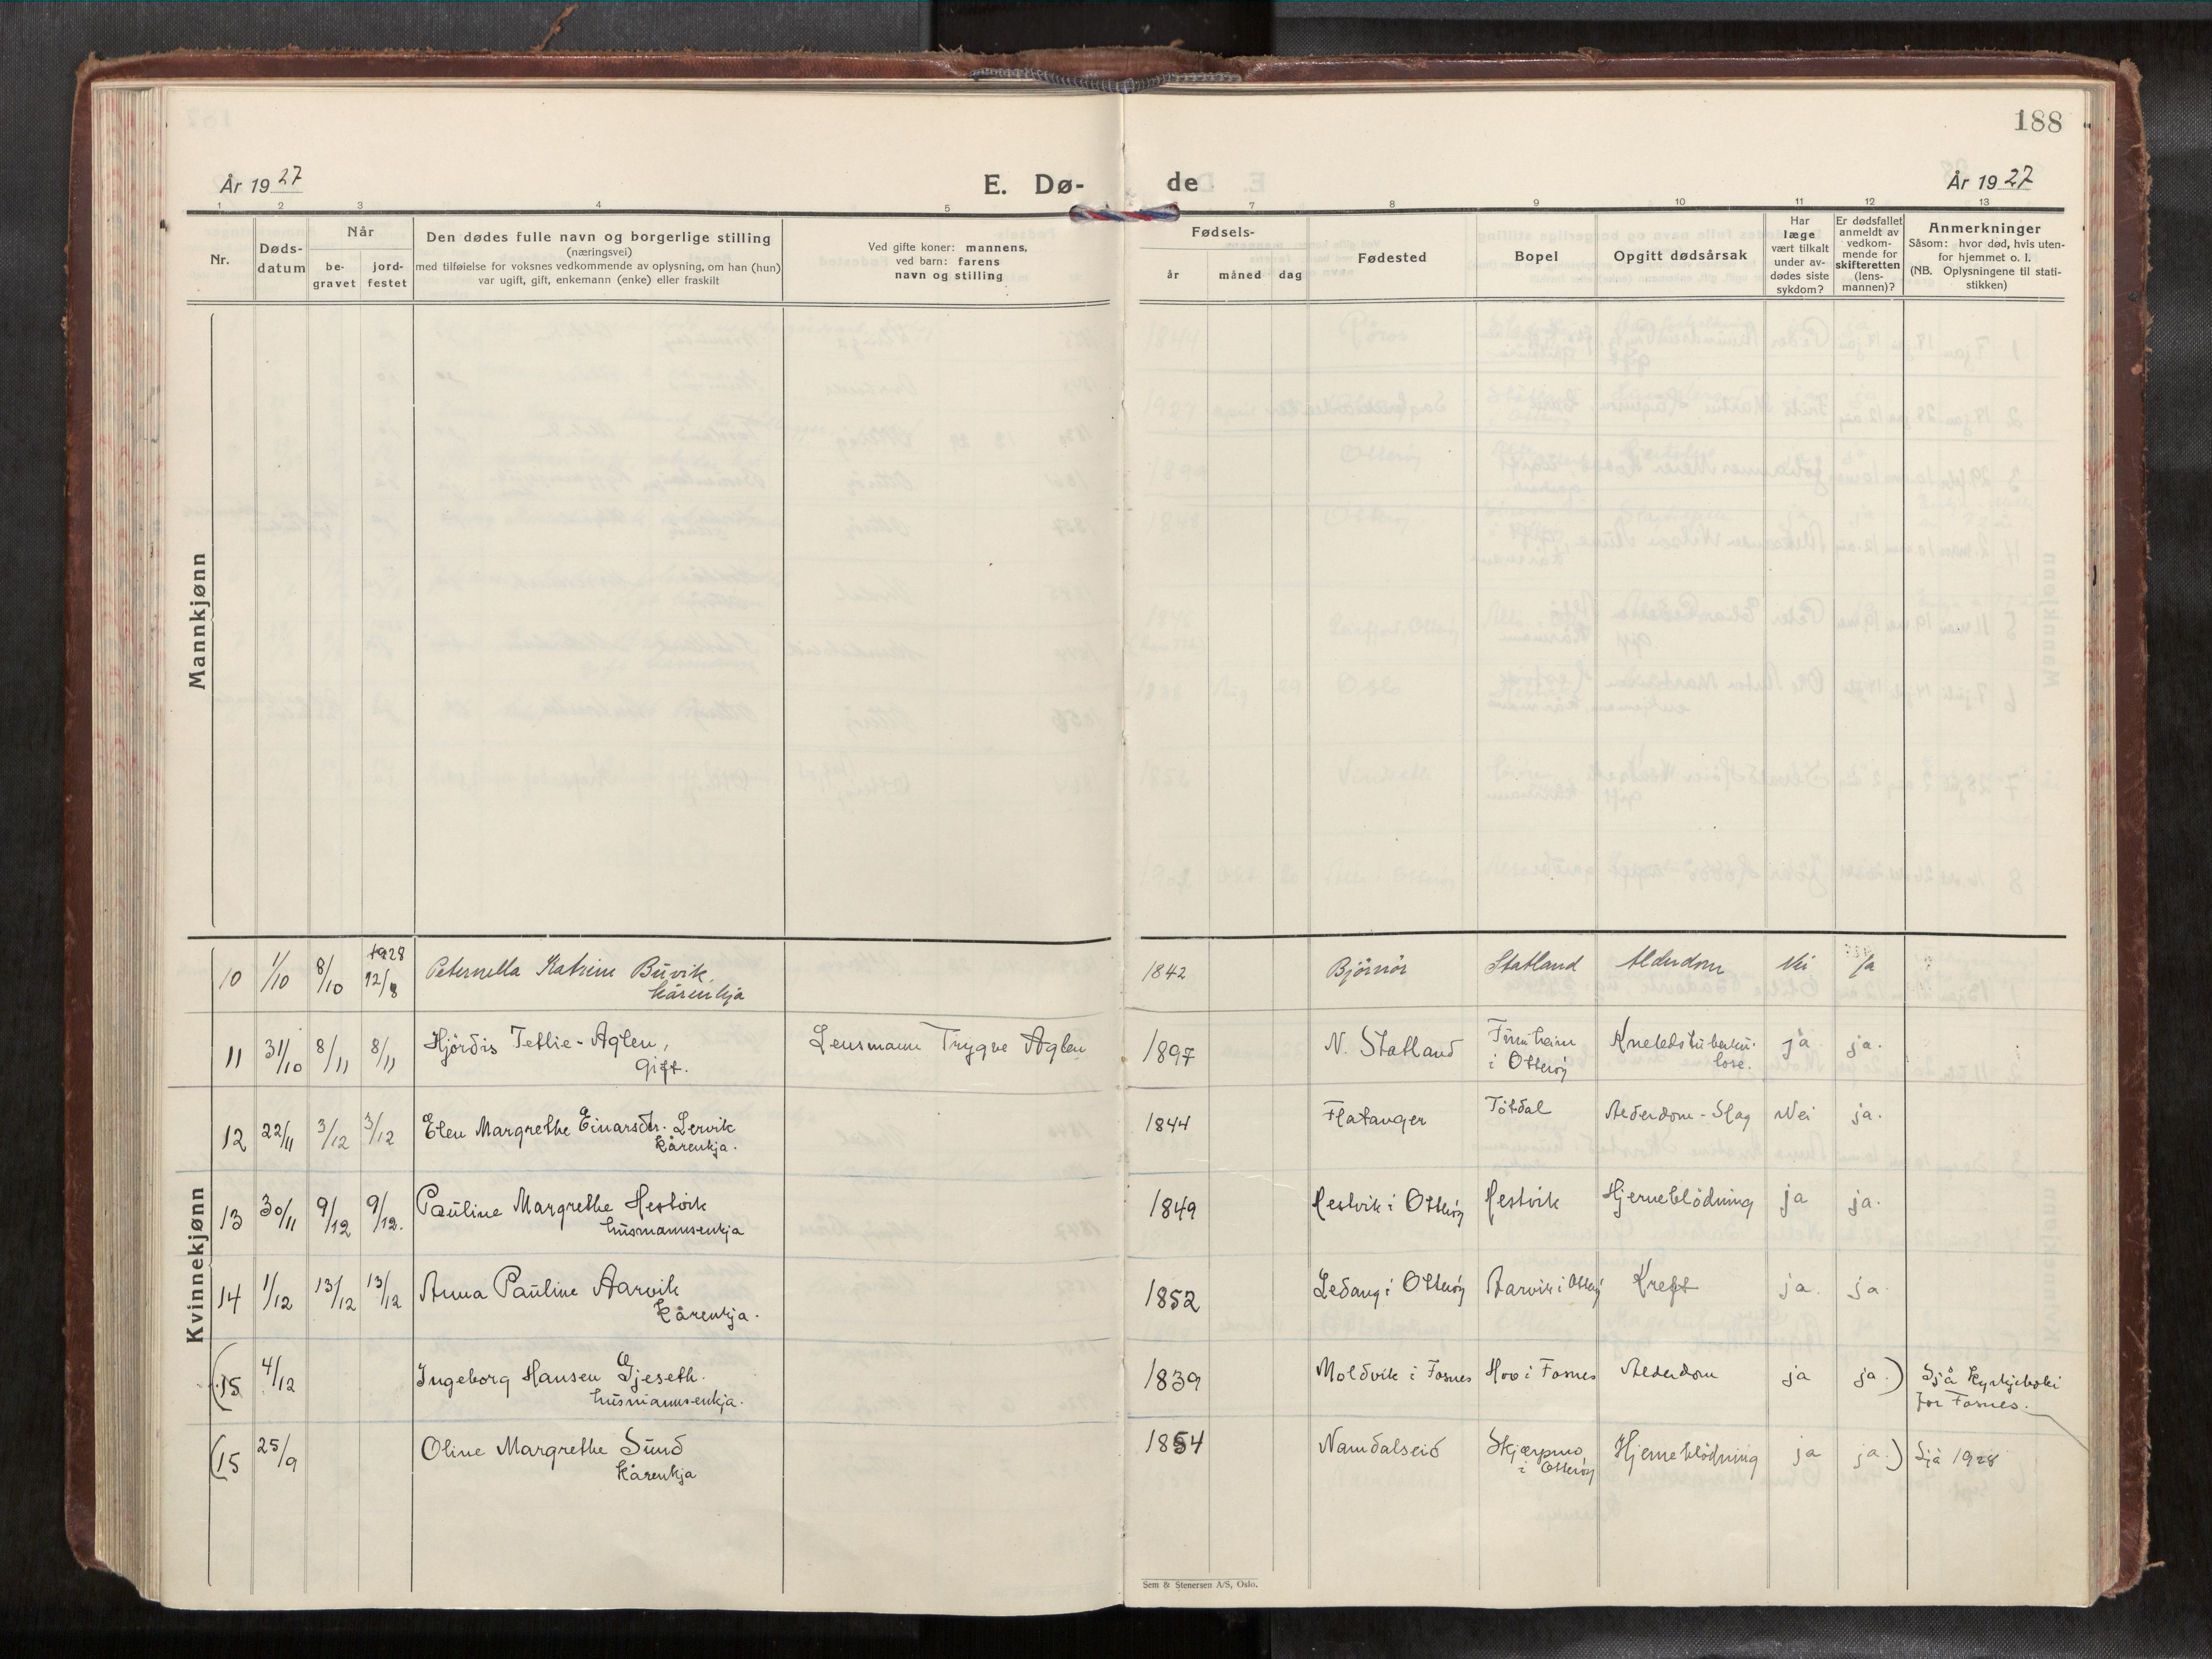 188
År 19 27
E. Dø-
de
År 19 27
1 2 3 4 5 7 8 9 10 11 12 13
Nr.
Døds-
datum
Når
be-
gravet
jord-
festet
Den dødes fulle navn og borgerlige stilling
(næringsvei)
med tilføielse for voksnes vedkommende av oplysning, om han (hun)
var ugift, gift, enkemann (enke) eller fraskilt
Ved gifte koner: mannens,
ved barn: farens
navn og stilling
Fødsels-
år måned dag
Fødested
Bopel
Opgitt dødsårsak
Har
læge
vært tilkalt
under av-
dødes siste
sykdom?
Er dødsfallet
anmeldt av
vedkom-
mende for
skifteretten
(lens-
mannen)?
Anmerkninger
Såsom: hvor død, hvis uten-
for hjemmet o. l.
(NB. Oplysningene til stati-
stikken)
Mannkjønn
Kvinnekjønn
1928
10 1/10 8/10 12/8 Peternella Katrine Buvik, 1842 Bjørnør Statland Alderdom Nei Ja
kårenkja
11 31/10 8/11 8/11 Hjördis Tetlie-Aglen, Lensmann Trygve Aglen 1897 N. Statland i Otteröy ja ja.
gift.
12 22/11 3/12 3/12 Elen Margrethe Einarsdtr. Lervik 1844 Flatanger Tötdal Alderdom - Slag Nei ja.
kårenkja.
13 30/11 9/12 9/12. Pauline Margrethe Hestvik 1849 Hestvik i Otteröy Hestvik Hjerneblödning ja ja.
husmannsenkja
14 1/12 13/12 13/12 Anna Pauline Aarvik 1852 Ledang i Otteröy Aarvik i Otteröy Kreft ja. ja.
kårenkja.
(15 4/12 Ingeborg Hansen Gjeseth. 1839 Moldvik i Fosnes Hov i Fosnes Alderdom ja ja.) Sjå Kyrkjeboki
husmannsenkja. for Fosnes.
(15 25/9 Oline Margrethe Sund 1854 Namdalseid Skjærpmo i Otteröy Hjerneblödning ja ja.) Sjå 1928
kårenkja
Sem & Stenersen A/S, Oslo.